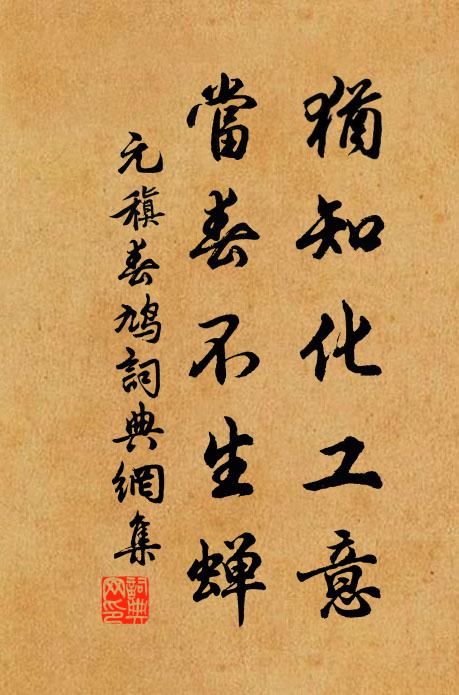 猶知化工意
當春不生蝉
元稹春鳩詞典網集
詞典网印